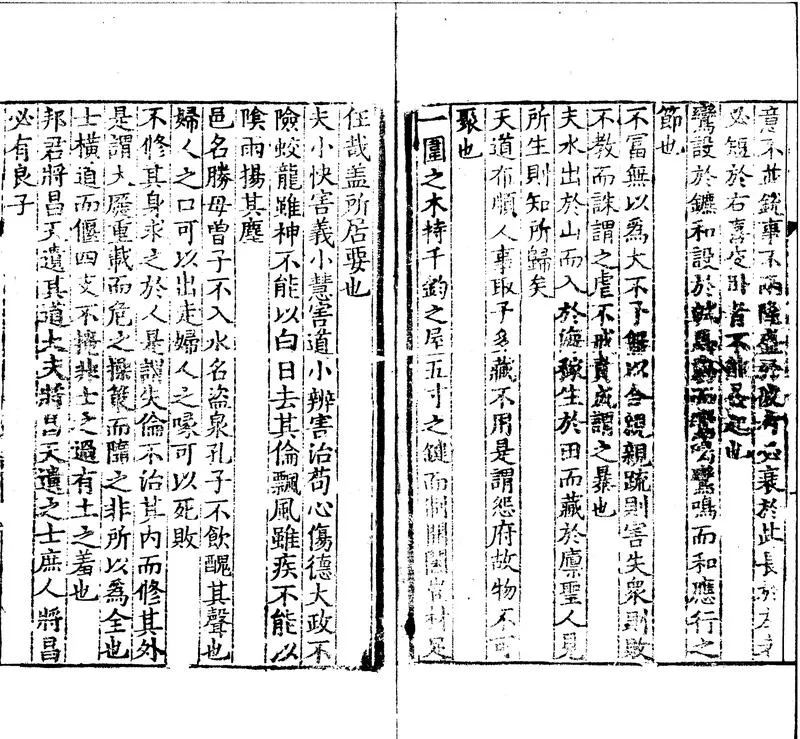 意不並銳事不兩隆盛於彼者必衰於此長於左者
必短於右喜夜卧者不能蚤起也
鸞設於鑣和設於軾馬動而鸞鳴鸞鳴而和應行之
節也
不富無以爲大不予無以合親親疏則害失衆則敗
不教而誅謂之虐不戒責成謂之暴也
夫水出於山而入於海稼生於田而藏於廩聖人見
所生則知所歸矣
天道布順人事取予多藏不用是謂怨府故物不可
聚也
一圍之木持千鈞之屋五寸之鍵而制開闔豈材足
任哉盖所居要也
夫小快害義小慧害道小辨害治苟心傷德大政不
險蛟龍雖神不能以白日去其倫飄風雖疾不能以
陰雨揚其塵
邑名勝母曾子不入水名盗泉孔子不飲醜其聲也
婦人之口可以出走婦人之喙可以死敗
不修其身求之於人是謂失倫不治其内而修其外
是謂大廢重載而危之操策而隨之非所以爲全也
士橫道而偃四支不掩非士之過有土之羞也
邦君將昌天遺其道大夫將昌天遺之士庶人將昌
必有良子